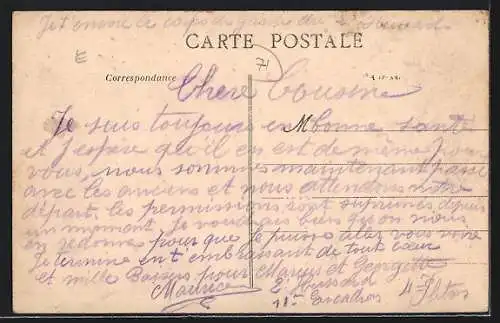 Je t'envoie le corps de garde du 2e Hussard
CARTE POSTALE
Correspondance
Chere Cousine
Je suis toujours en bonne santé
et j'espère qu'il en est de même pour
vous, nous sommes maintenant passé
avec les anciens et nous attendons notre
départ. les permissions sont suprimés depuis
un moment. Je voudrais bien qu'on nous
en redonne pour que je puisse aller vous voir
Je termine en t'embrassant de tout cœur
et mille Baisers pour Marius et Georgette
Maurice
2e Hussard
11e Escadron 4e